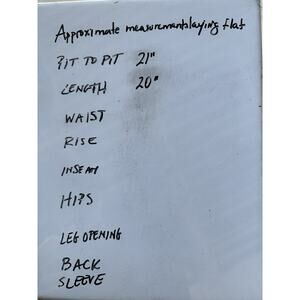 Approximate measurements laying flat
PIT TO PIT 21"
LENGTH 20"
WAIST
RISE
INSEAM
HIPS
LEG OPENING
BACK
SLEEVE